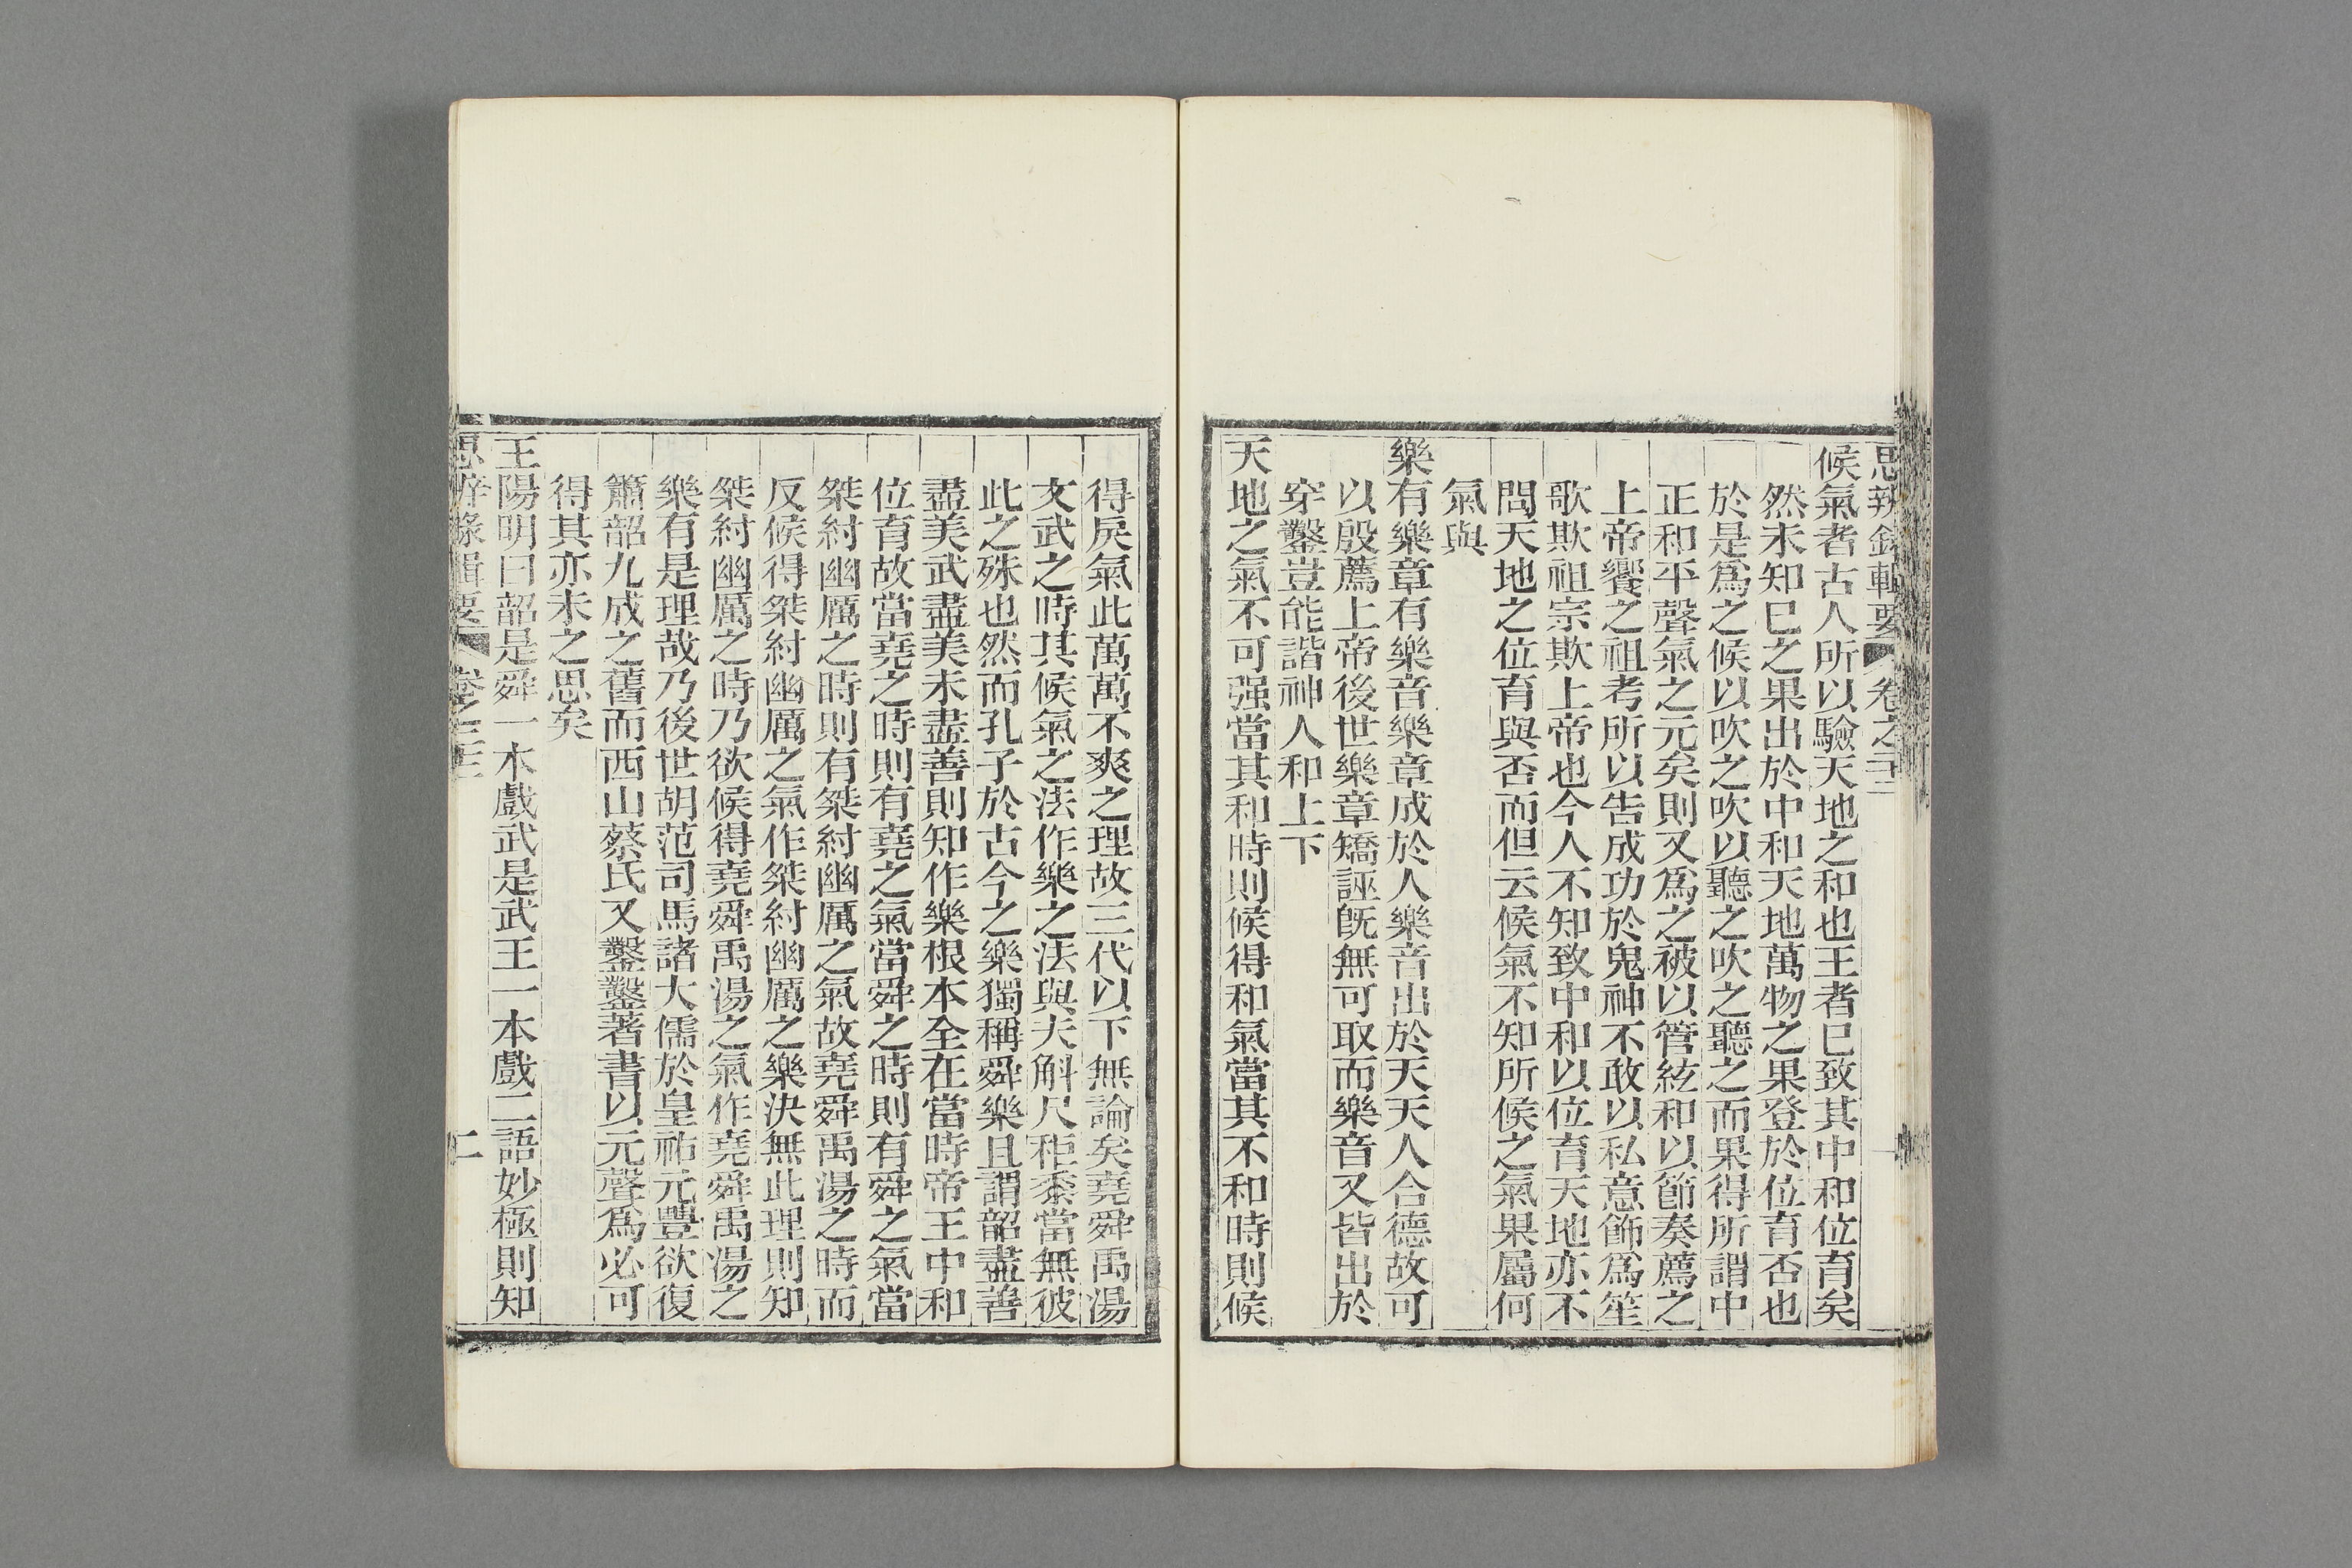 思辨錄輯要 卷之二十二
候氣者古人所以驗天地之和也王者已致其中和位育矣
然未知已之果出於中和天地萬物之果登於位育否也
於是爲之候以吹之吹以聽之吹之聽之而果得所謂中
正和平聲氣之元矣則又爲之被以管絃和以節奏薦之
上帝饗之祖考所以告成功於鬼神不敢以私意飾爲笙
歌欺祖宗欺上帝也今人不知致中和以位育天地亦不
問天地之位育與否而但云候氣不知所候之氣果屬何
氣與
樂有樂章有樂音樂章成於人樂音出於天天人合德故可
以殷薦上帝後世樂章矯誣旣無可取而樂音又皆出於
穿鑿豈能諧神人和上下
天地之氣不可强當其和時則候得和氣當其不和時則候
得戾氣此萬萬不爽之理故三代以下無論矣堯舜禹湯
文武之時其候氣之法作樂之法與夫斛尺秬黍當無彼
此之殊也然而孔子於古今之樂獨稱舜樂且謂韶盡善
盡美武盡美未盡善則知作樂根本全在當時帝王中和
位育故當堯之時則有堯之氣當舜之時則有舜之氣當
桀紂幽厲之時則有桀紂幽厲之氣故堯舜禹湯之時而
反候得桀紂幽厲之氣作桀紂幽厲之樂決無此理則知
桀紂幽厲之時乃欲候得堯舜禹湯之氣作堯舜禹湯之
樂有是理哉乃後世胡范司馬諸大儒於皇祐元豐欲復
簫韶九成之舊而西山蔡氏又鑿鑿著書以元聲爲必可
得其亦未之思矣
王陽明曰韶是舜一本戲武是武王一本戲二語妙極則知
思辨錄輯要 卷之二十二 二